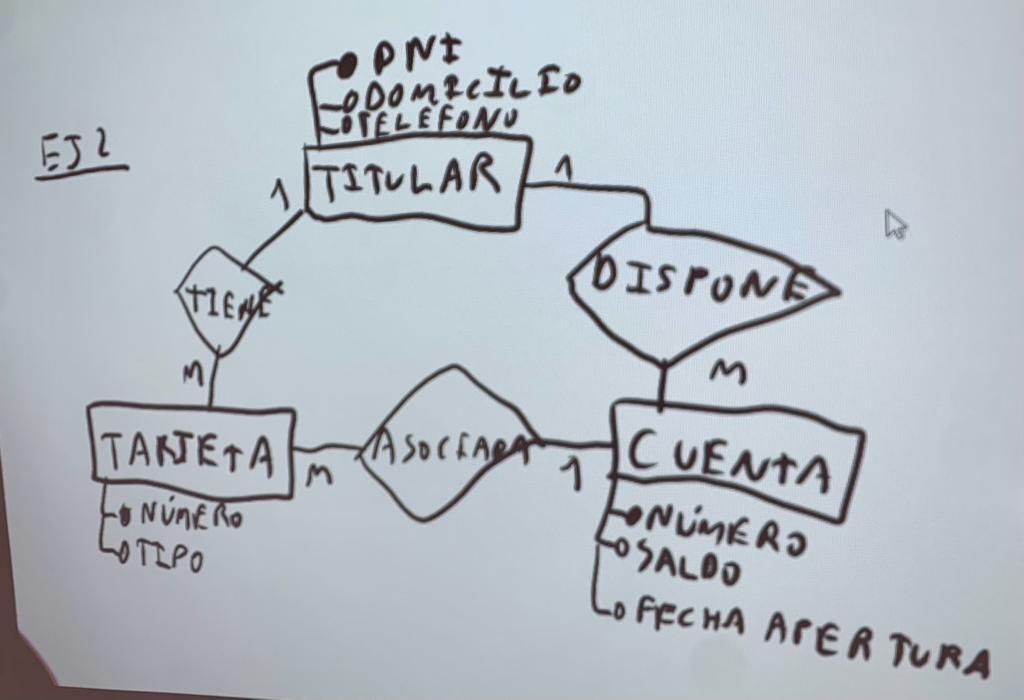 EJ2
DNI
DOMICILIO
TELÉFONO
TITULAR
1
1
TIENE
DISPONE
M
M
TARJETA
M
ASOCIADA
1
CUENTA
NÚMERO
TIPO
NÚMERO
SALDO
FECHA APERTURA